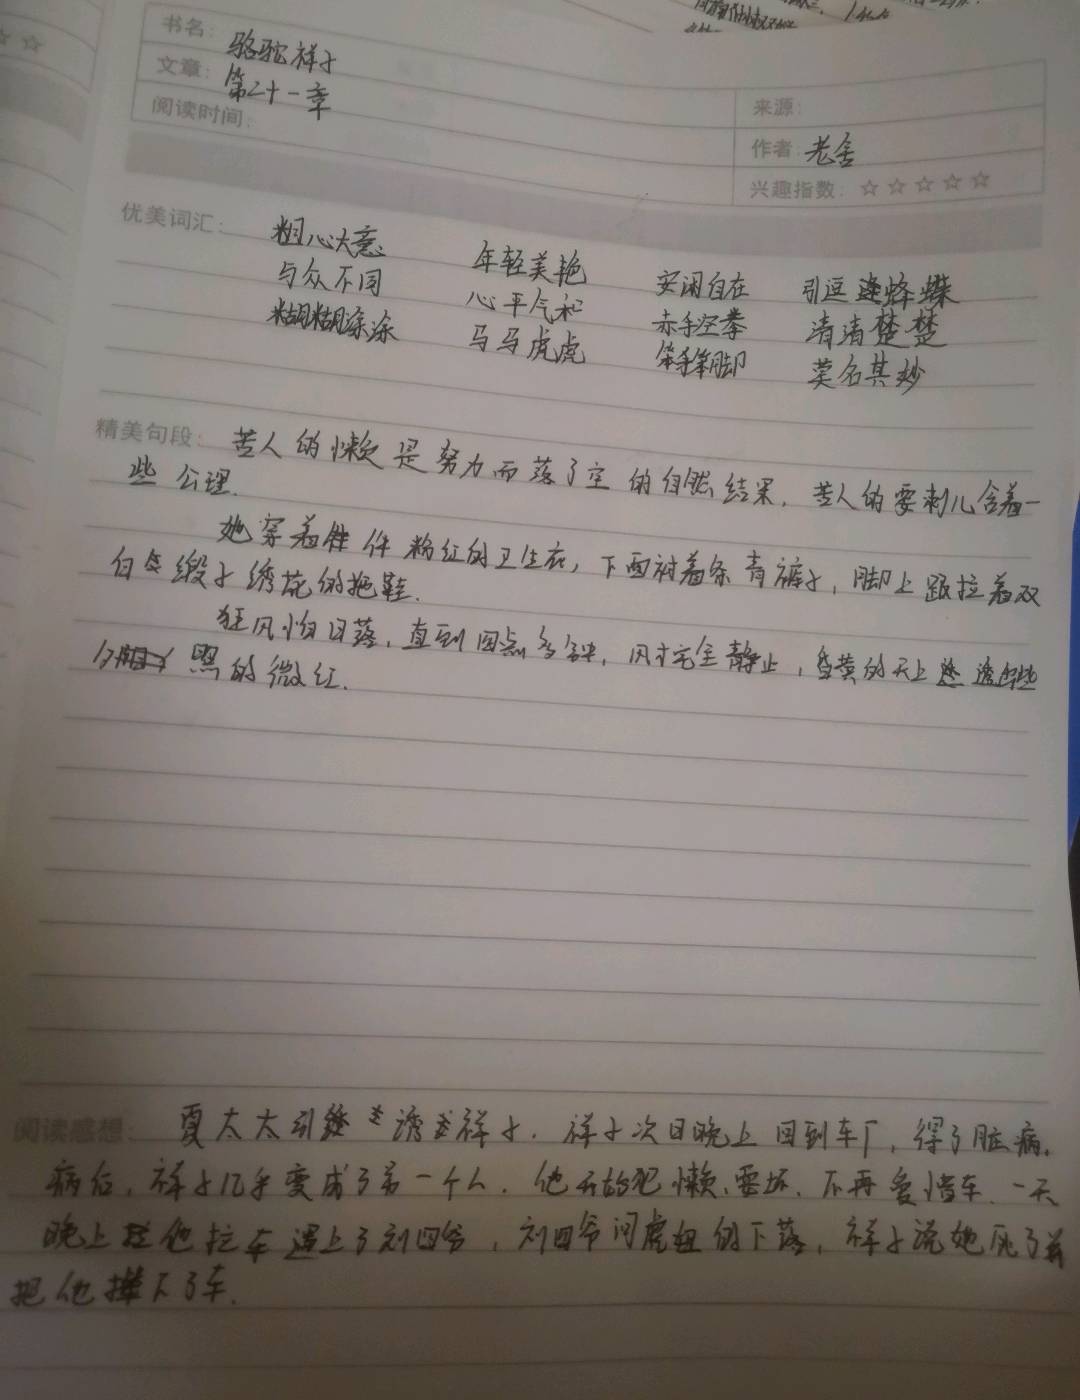 书名：骆驼祥子
文章：第二十一章
阅读时间：
来源：
作者：老舍
兴趣指数：☆☆☆☆☆
优美词汇：粗心大意 年轻美艳 安闲自在 引逗蜂蝶
与众不同 心平气和 赤手空拳 清清楚楚
糊糊涂涂 马马虎虎 笨手笨脚 莫名其妙
精美句段：苦人的懒是努力而落了空的自然结果，苦人的耍刺儿含着一
些公理．
她穿着件粉红的卫生衣，下面衬着条青裤子，脚上趿拉着双
白缎子绣花的拖鞋．
狂风怕日落，直到四点多钟，风才完全静止，昏黄的天上透出些
夕照的微红．
阅读感想：夏太太引诱祥子．祥子次日晚上回到车厂，得了脏病，
病后，祥子几乎变成了另一个人．他开始犯懒、耍坏、不再爱惜车．一天
晚上他拉车遇上了刘四爷，刘四爷问虎妞的下落，祥子说她死了并
把他撵下了车．